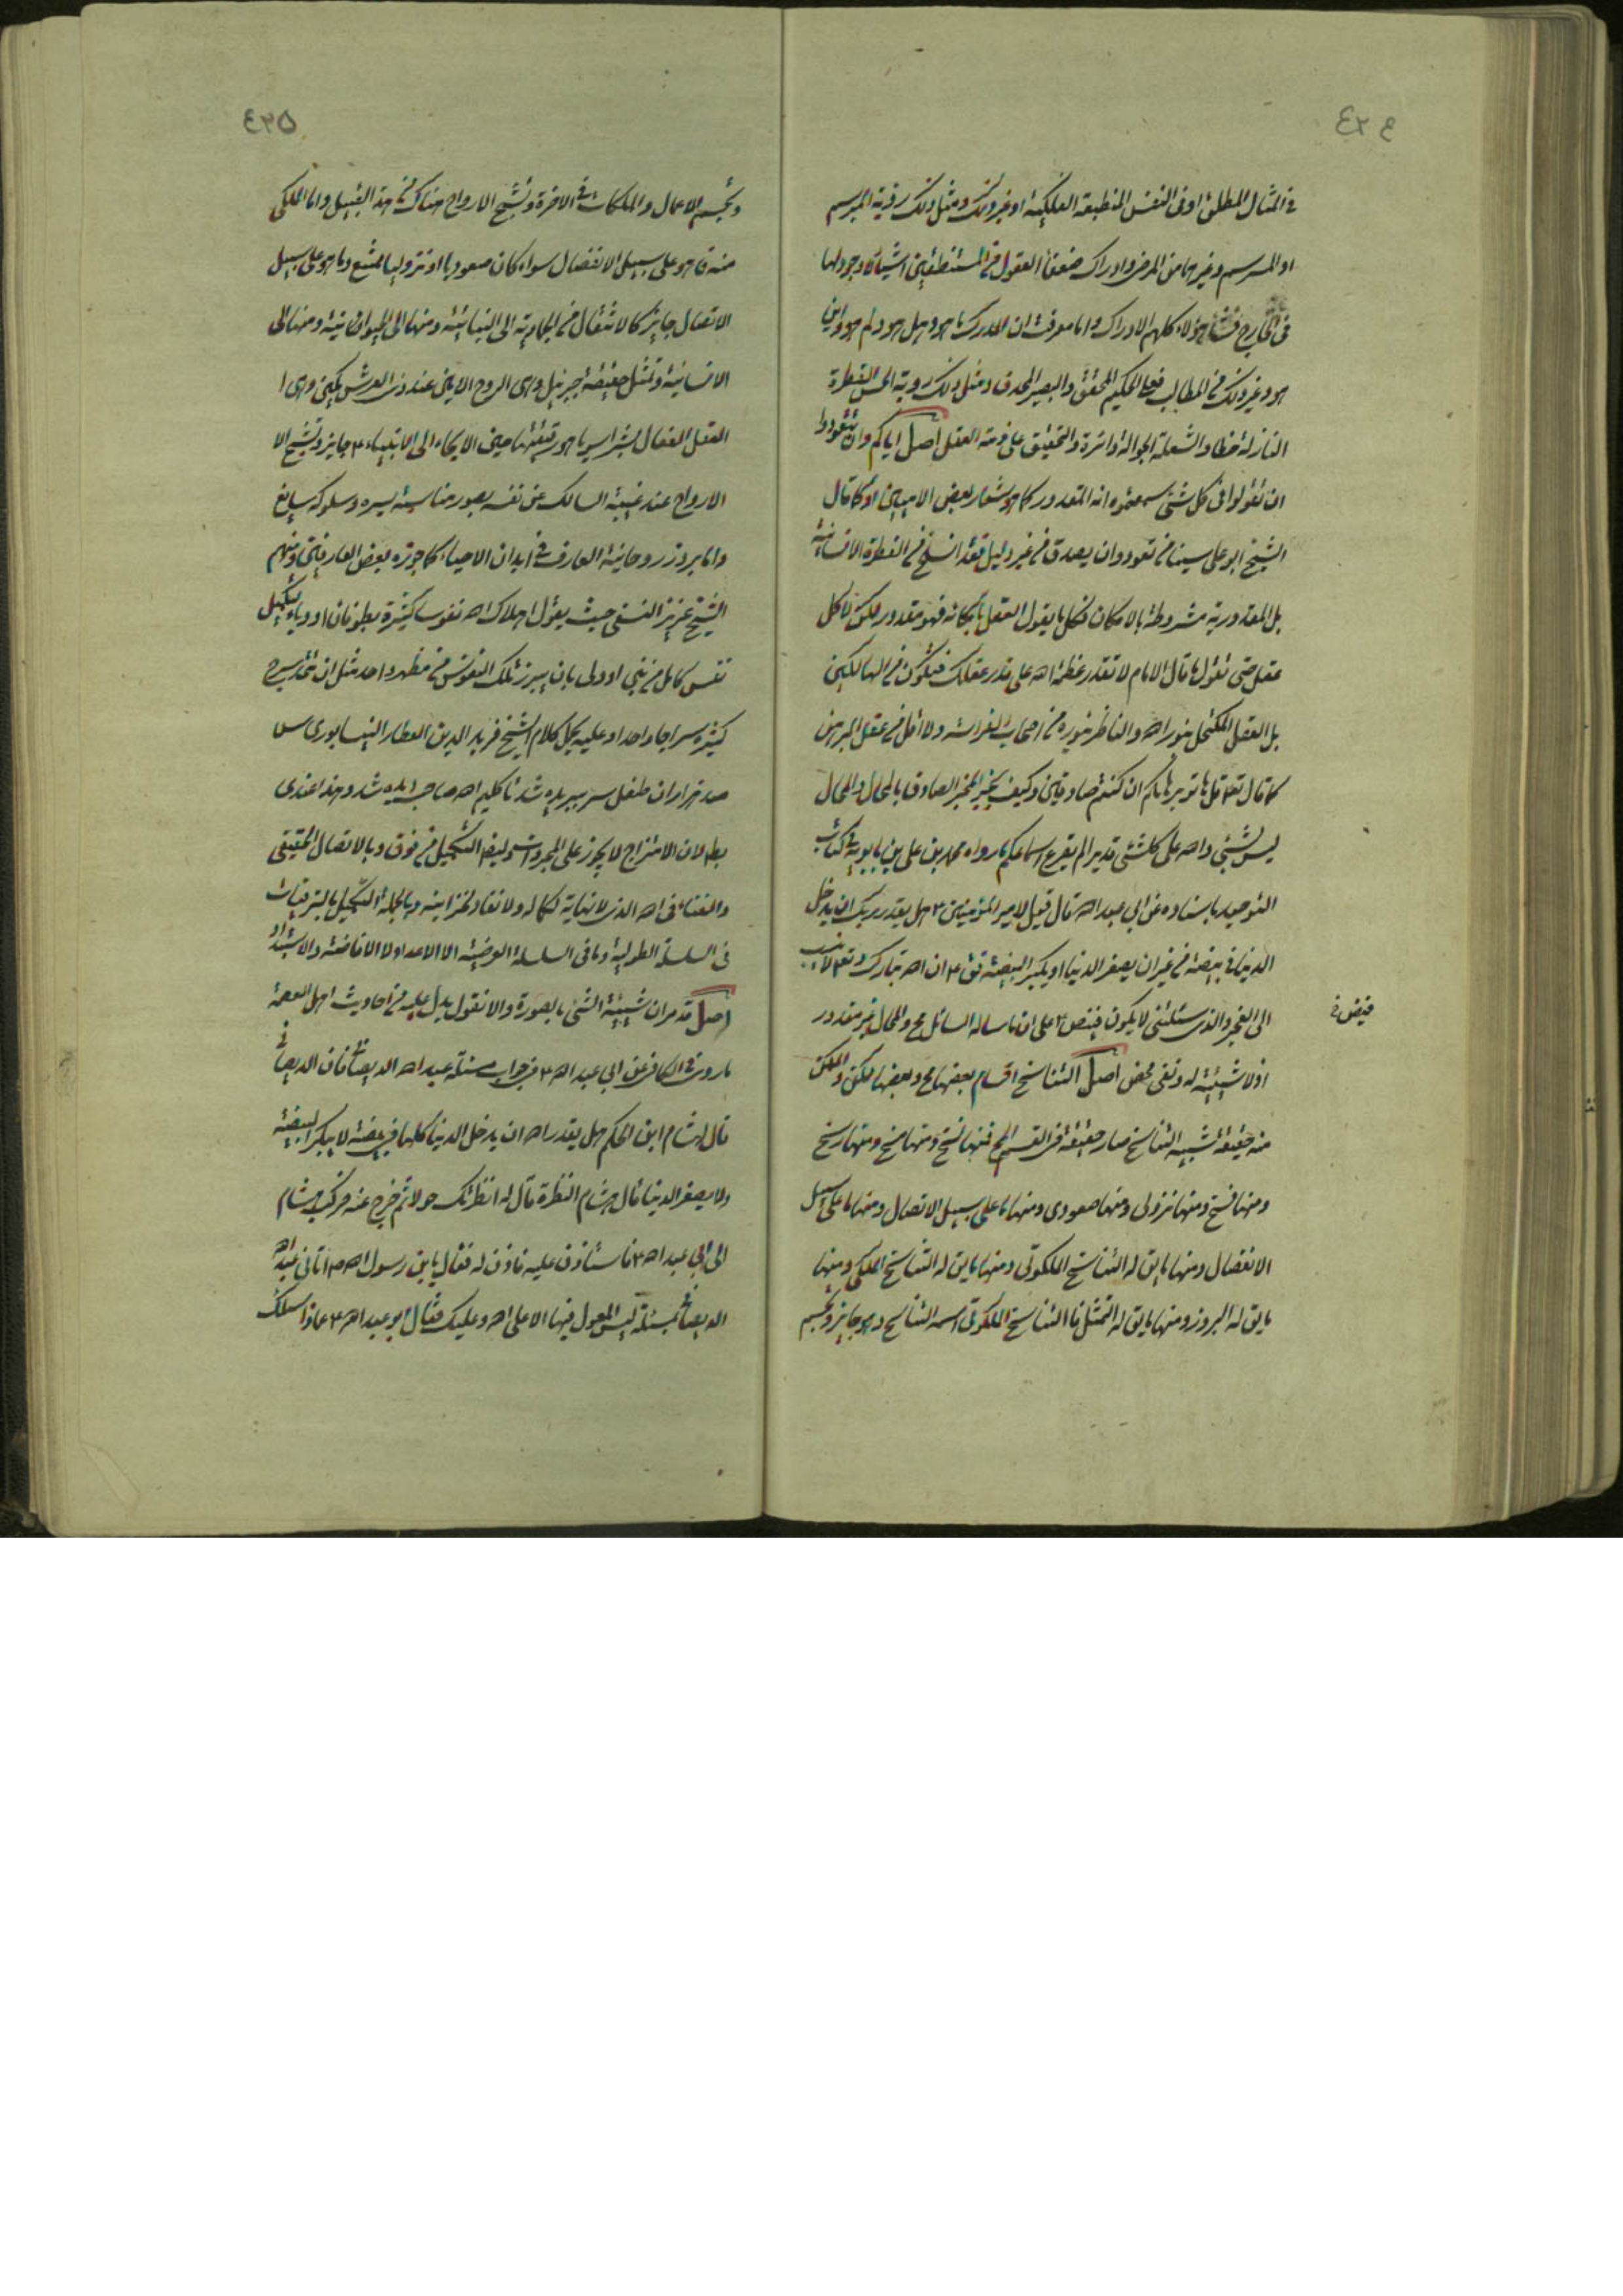 ٤٣٤
فی المثال المطلق او فی النفس المنطبعة الفلکیة او غیر ذلک و مثل ذلک رؤیة المبرسم
او المسرسم و غیرهما من المرضی و ادراک ضعفاء العقول من المستنطقین اشیاء لا وجود لها
فی الخارج هؤلاء کلهم الادراک و اما معرفة ان المدرک ما هو و هل هو و لم هو و این
هو و غیر ذلک من المطالب فعلی الحکیم المحقق و البصیر المحدق و مثل ذلک رویة الحس القطرة
النازلة خطا و الشعلة الجوالة دائرة و التحقیق علی ذمة العقل اصل ایاکم و ان تتعودوا
ان تقولوا فی کل شئ سمعتموه انه المقدور کما هو شعار بعض الامیین او کما قال
الشیخ ابو علی سینا من تعود و ان یصدق من غیر دلیل فقد انسلخ من الفطرة الانسانیة
بل المقدوریة مشروطة بالامکان فکل ما یقول العقل بامکانه فهو مقدور لکن لا کل
عقل حتی تقول ما قال الامام لا تقدر عظمة الله علی قدر عقلک فتکون من الهالکین
بل العقل المکتحل بنور الله و الناظر بنوره من اصحاب الفراسة و لا اقل من عقل المبرهن
کما قال تعالی قل هاتوا برهانکم ان کنتم صادقین و کیف یخبر المخبر الصادق بالمحال و المحال
لیس بشئ و الله علی کل شئ قدیر الم یقرع اسماعکم ما رواه محمد بن علی بن بابویه فی کتاب
التوحید باسناده عن ابی عبد الله قال قیل لامیر المؤمنین ع هل یقدر ربک ان یدخل
الدنیا فی بیضة من غیر ان یصغر الدنیا او یکبر البیضة فق ع ان الله تبارک و تعالی لا ینسب
الی العجز و الذی سئلتنی لا یکون فینص ع علی ان ما ساله السائل مح و المحال غیر مقدور
اذ لا شیئیة له و نفی محض اصل التناسخ اقسام بعضها مح و بعضها ممکن و الممکن
منه حقیقة شبیه التناسخ صار حقیقة فی القسم المح فمنها نسخ و منها مسخ و منها رسخ
و منها فسخ و منها نزولی و منها صعودی و منها ما علی سبیل الاتصال و منها ما علی سبیل
الانفصال و منها ما یق له التناسخ الملکوتی و منها ما یق له التناسخ الملکی و منها
ما یق له البروز و منها ما یق له التمثل فالتناسخ الملکوتی اسمه التناسخ و هو جایز و تجسم
٤٣٥
و تجسم الاعمال و الملکات فی الاخرة و تشبح الارواح هناک من هذا القبیل و اما الملکی
منه فما هو علی سبیل الانفصال سواء کان صعودیا او نزولیا ممتنع و ما هو علی سبیل
الاتصال جایز کالانتقال من الجمادیة الی النباتیة و منها الی الحیوانیة و منها الی
الانسانیة و تمثل حقیقة جبرئیل و هی الروح الامین عند ذی العرش مکین و هی ا
العقل الفعال بشرا سویا هو رقیقتها حین الایحاء الی الانبیاء ع جایز و تشبح الا
الارواح عند غیبة السالک عن نفسه بصور مناسبة لسیره و سلوکه سایغ
و اما بروز روحانیة العارف فی ابدان الاحیاء کما جوزه بعض العارفین و منهم
الشیخ عزیز النسفی حیث یقول اهلاک الله نفوسا کثیرة بطوفان او وباء لتکمیل
نفس کامل من نبی او ولی بان یبرز تلک النفوس من مظهر واحد مثل ان تتحد سرج
کثیرة سراجا واحدا و علیه یحمل کلام الشیخ فرید الدین العطار النیسابوری س
صد هزاران طفل سر ببریده شد تا کلیم الله صاحب دیده شد و هذا عندی
بط لان الامتزاج لا یجوز علی المجردات و لیض التکمیل من فوق و بالاتصال الحقیقی
و الفناء فی الله الذی لا نهایة لکماله و لا نفاد لخزاینه و بالجملة التکمیل بالترقیات
فی السلسلة الطولیة و ما فی السلسلة العرضیة الا الاعداد لا الافاضة و الاستبداد
اصل قد مر ان شیئیة الشئ بالصورة و الان نقول یدل علیه من احادیث اهل العصمة
ما روی فی الکافی عن ابی عبد الله ع فی جواب مسئلة عبد الله الدیصانی فان الدیصانی
قال لهشام ابن الحکم هل یقدر الله ان یدخل الدنیا کلها فی بیضة لا یکبر البیضة
و لا یصغر الدنیا قال هشام النظرة قال له انظرتک حولا ثم خرج عنه فرکب هشام
الی ابی عبد الله ع فاستأذن علیه فاذن له فقال یا بن رسول الله ص اتانی عبد الله
الدیصانی بمسئلة لیس المعول فیها الا علی الله و علیک فقال ابو عبد الله ع عماذا سئلک